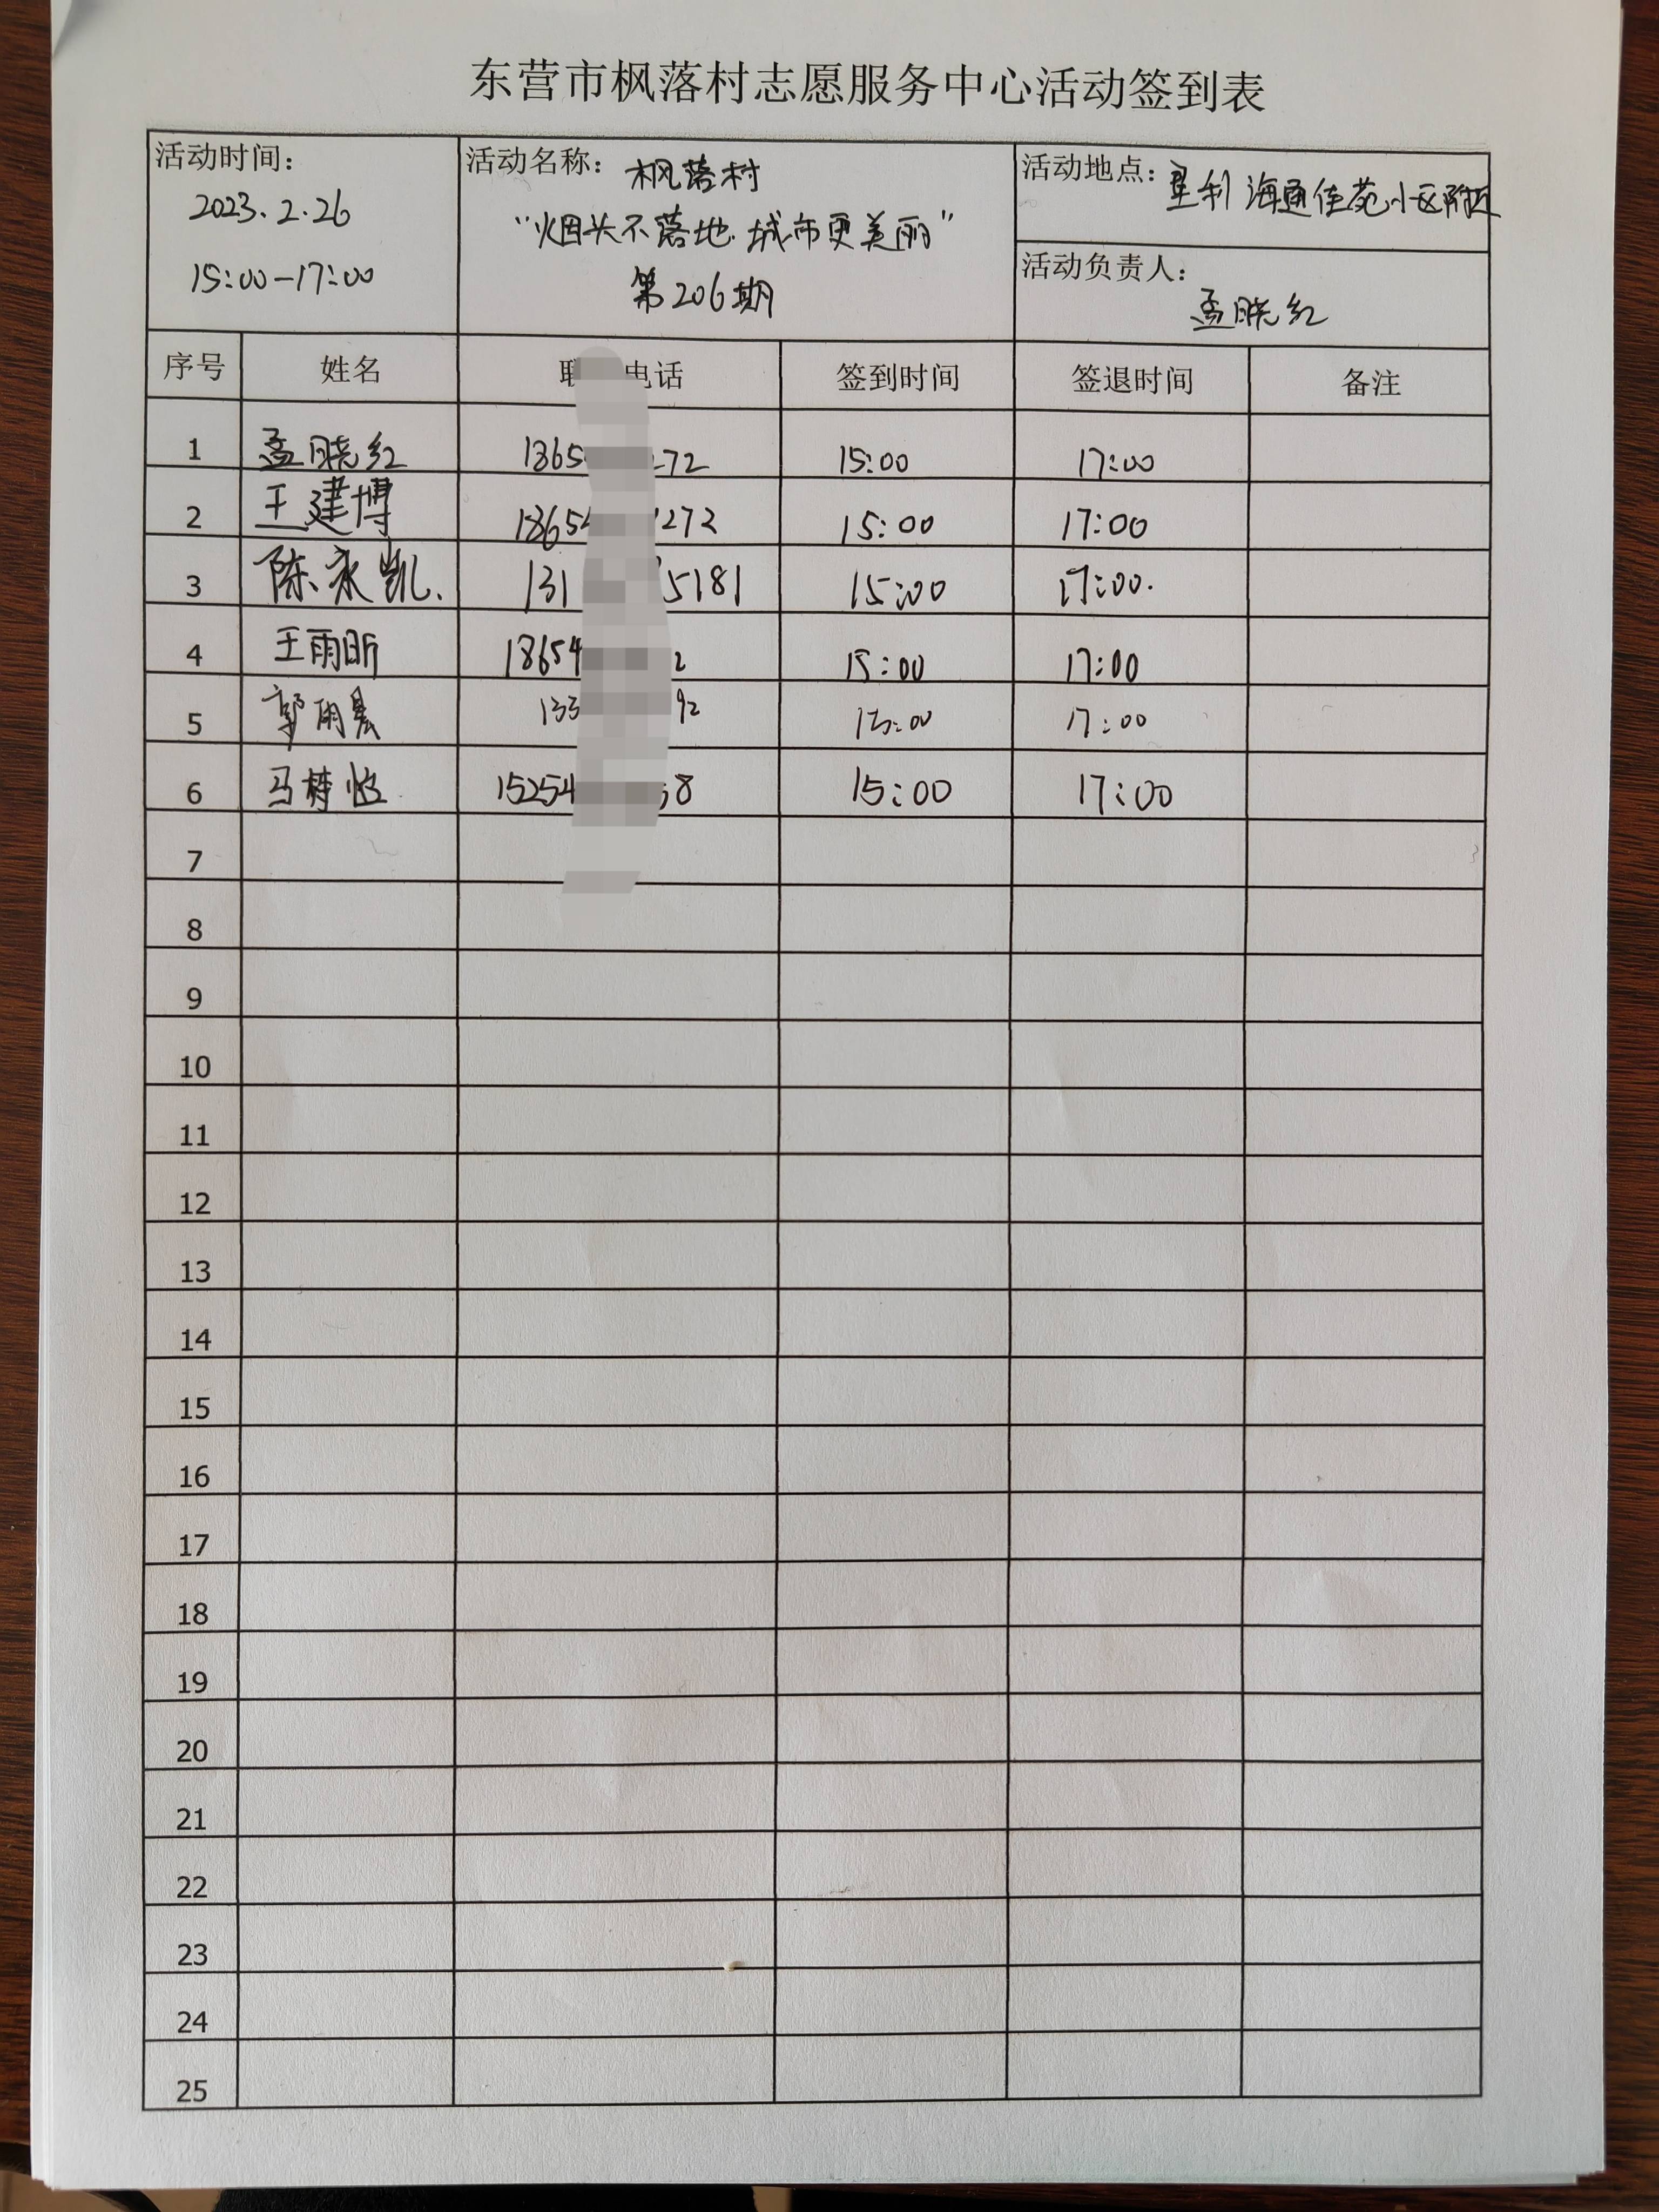 东营市枫落村志愿服务中心活动签到表
活动时间：
2023.2.26
15:00-17:00
活动名称：枫落村
“烟头不落地 城市更美丽”
第206期
活动地点：垦利 海通佳苑小区附近
活动负责人：
孟晓红
序号 姓名 电话 签到时间 签退时间 备注
1 孟晓红 1865 272 15:00 17:00
2 王建博 1865 272 15:00 17:00
3 陈永凯. 131 5181 15:00 17:00.
4 王雨昕 18654 2 15:00 17:00
5 郭雨晨 133 92 15:00 17:00
6 马梓 15254 58 15:00 17:00
7
8
9
10
11
12
13
14
15
16
17
18
19
20
21
22
23
24
25